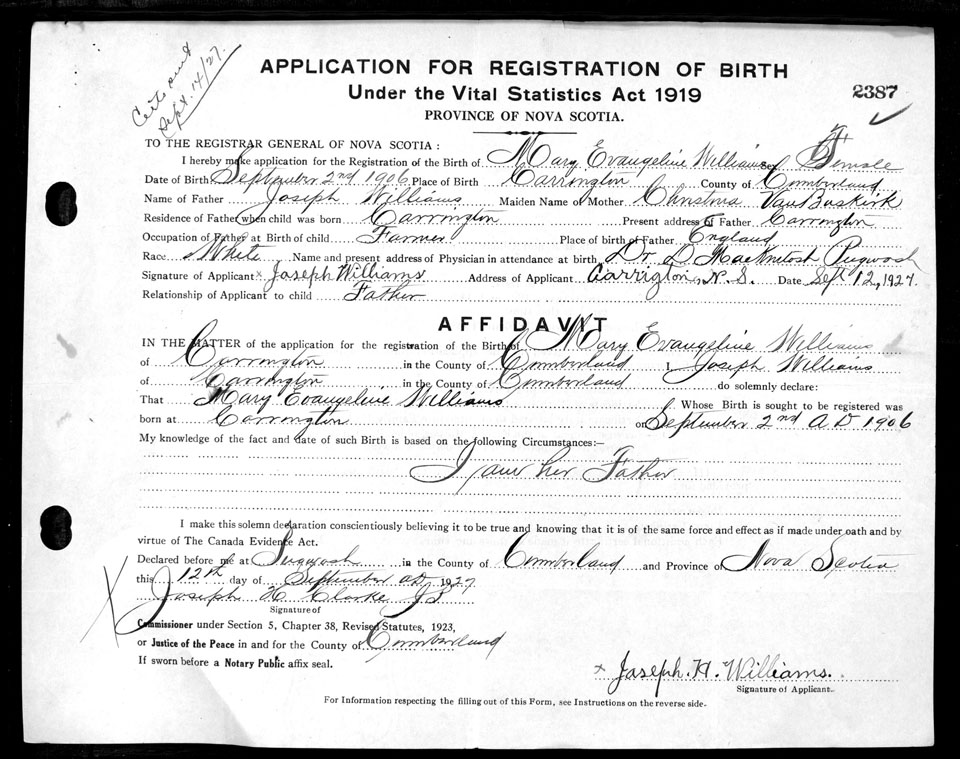 Certs sent
Sept. 14/27.
APPLICATION FOR REGISTRATION OF BIRTH
Under the Vital Statistics Act 1919
2387
PROVINCE OF NOVA SCOTIA.
TO THE REGISTRAR GENERAL OF NOVA SCOTIA:
I hereby make application for the Registration of the Birth of Mary Evangeline Williams Female
Date of Birth September 2nd 1906 Place of Birth Carrington County of Cumberland
Name of Father Joseph Williams Maiden Name of Mother Christina VanBuskirk
Residence of Father when child was born Carrington Present address of Father Carrington
Occupation of Father at Birth of child Farmer Place of birth of Father England
Race White Name and present address of Physician in attendance at birth Dr. D MacKintosh Pugwash
Signature of Applicant x Joseph Williams Address of Applicant Carrigton, N. S. Date Sept 12, 1927.
Relationship of Applicant to child Father
AFFIDAVIT
IN THE MATTER of the application for the registration of the Birth of Mary Evangeline Williams
of Carrington in the County of Cumberland I Joseph Williams
of Carrington in the County of Cumberland do solemnly declare:
That Mary Evangeline Williams Whose Birth is sought to be registered was
born at Carrington on September 2nd A D 1906
My knowledge of the fact and date of such Birth is based on the following Circumstances:—
I am her Father
I make this solemn declaration conscientiously believing it to be true and knowing that it is of the same force and effect as if made under oath and by
virtue of The Canada Evidence Act.
Declared before me at Pugwash in the County of Cumberland and Province of Nova Scotia
this 12th day of September AD 1927
Joseph H Clarke JP
Signature of
Commissioner under Section 5, Chapter 38, Revised Statutes, 1923,
or Justice of the Peace in and for the County of Cumberland
If sworn before a Notary Public affix seal.
x Joseph. H. Williams.
Signature of Applicant.
For Information respecting the filling out of this Form, see Instructions on the reverse side.